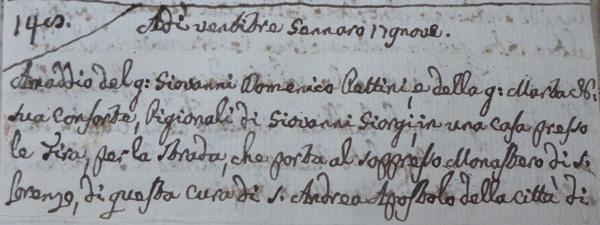 Adì ventitre Gennaro 17gnove.
Amaddio del q: Giovanni Domenico Pettini, e della q: Marta
sua Consorte, Pigionali di Giovanni Giorgi, in una casa presso
le Tira, per la Strada, che porta al soppresso Monastero di S:
Lorenzo, di questa cura di S: Andrea Apostolo della Città di